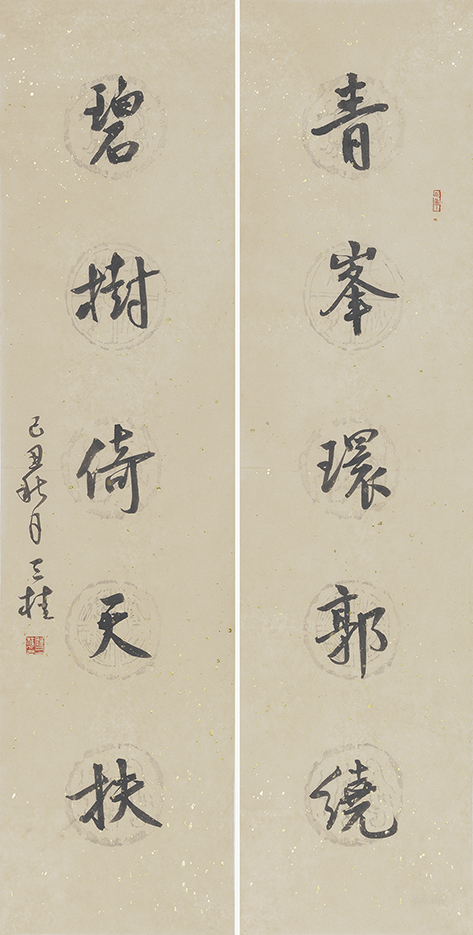 青峯環郭繞
碧樹倚天扶
己丑秋月三桂